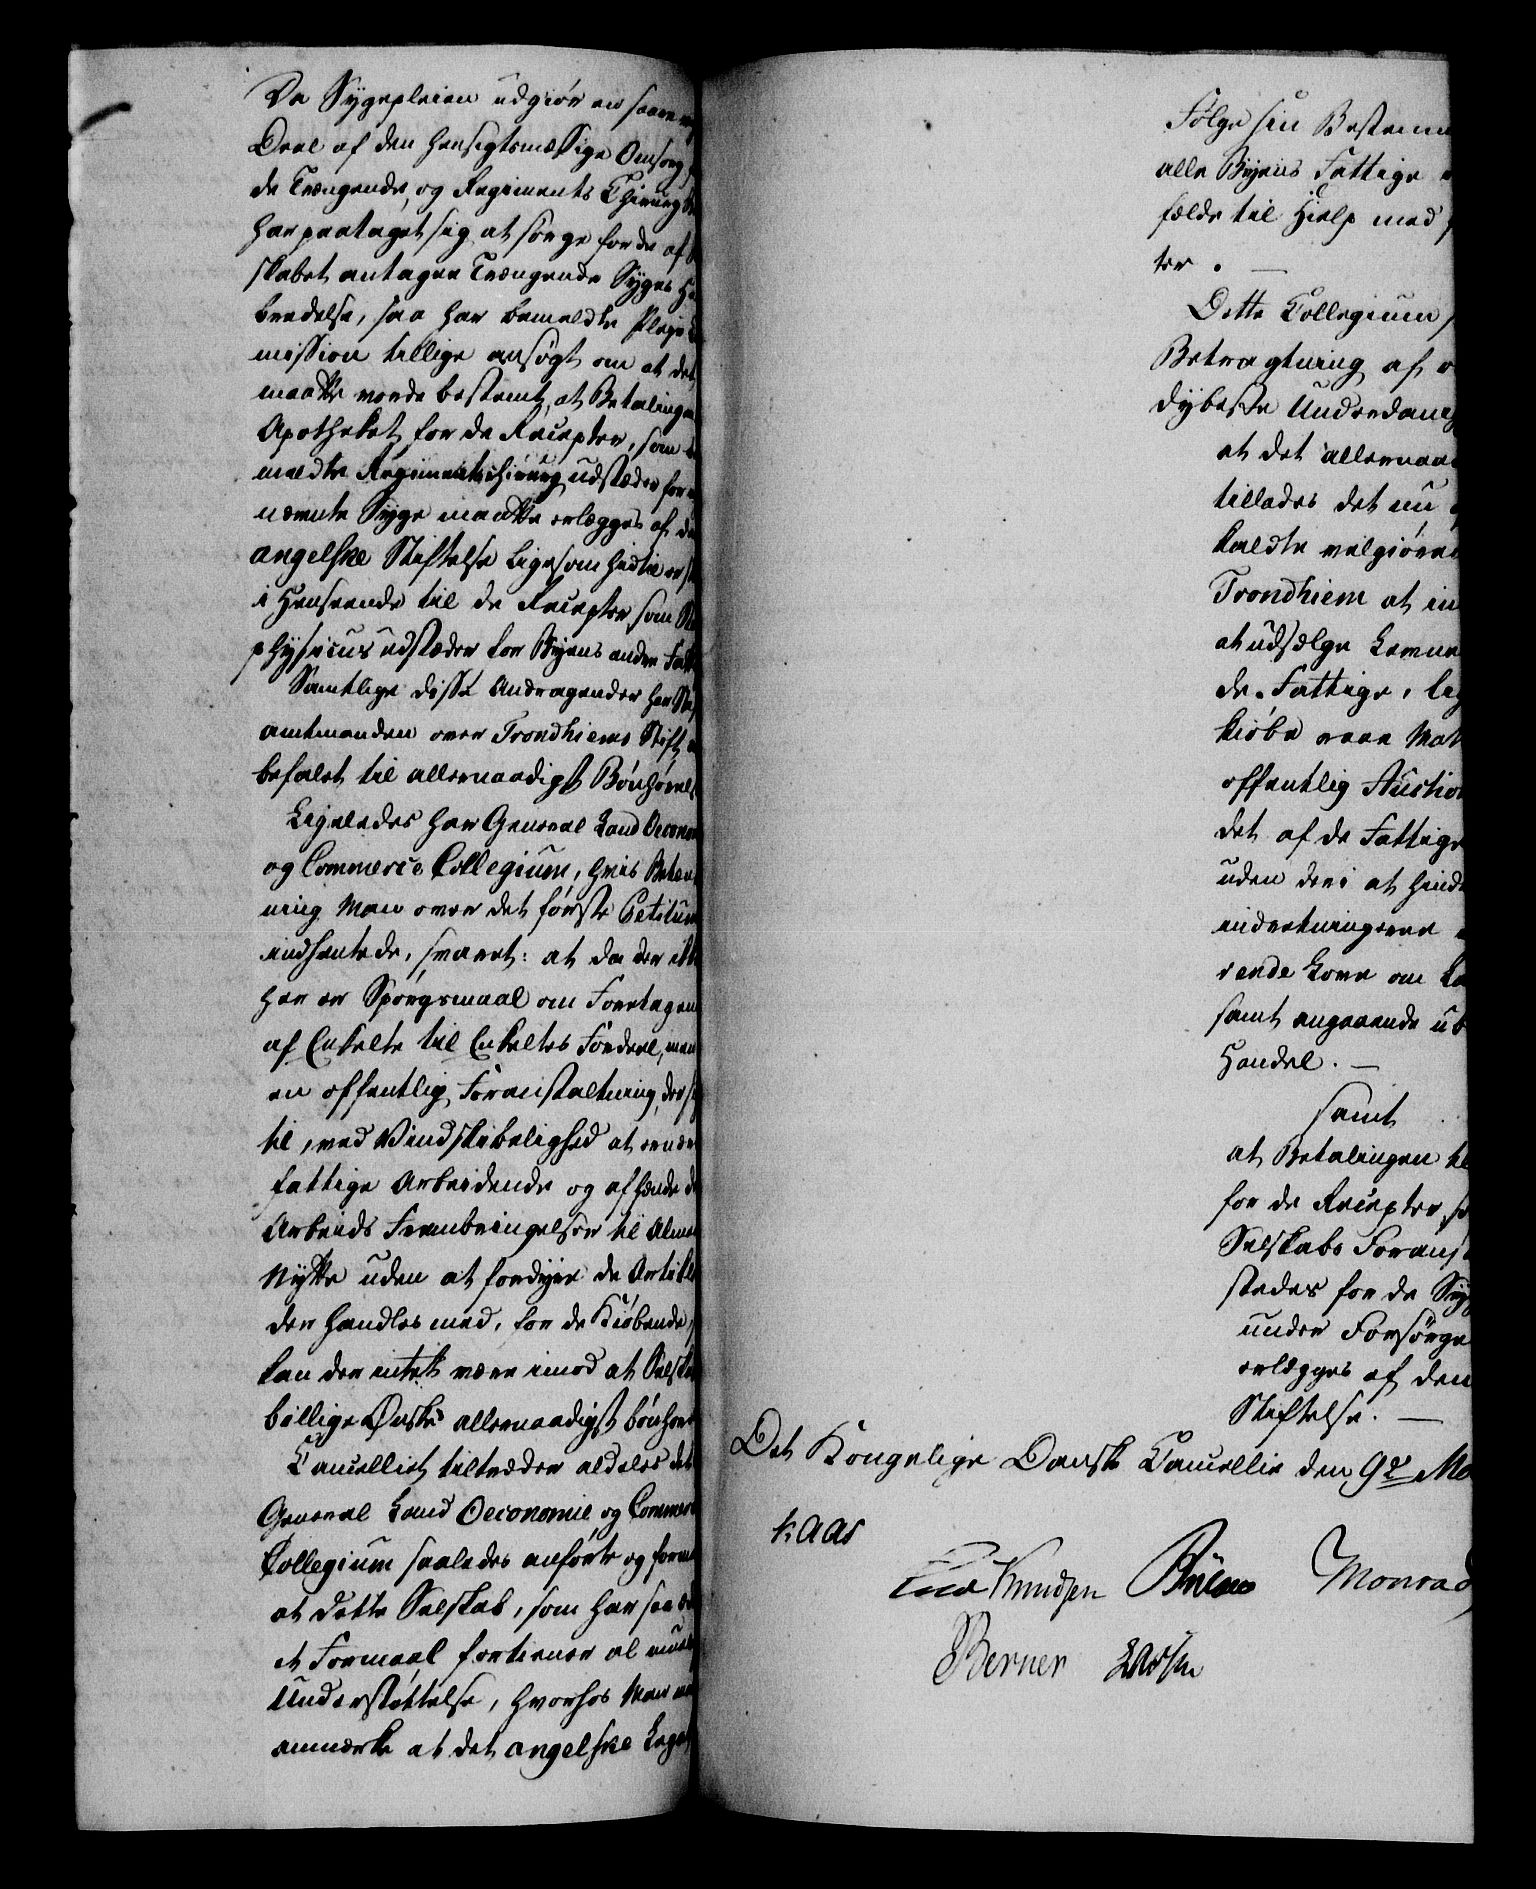 Da Sygepleien udgiør en saare
Deel af den hensigtsmæssige Omsorg
de Trængende, og Regiments Chirurg
har paataget sig at sørge for de af
skabet antagne Trængende Syges
bredelse, saa har bemeldte Pleie
mission tillige ansøgt om at det
maatte vorde bestemt, at Betalingen
Apotheket for de Recepter, som
meldte Regimentschirurg udstæder for
nævnte Syge maatte erlægges af
angelske Stiftelse ligesom hidtil er
i Henseende til de Recepter, som
physicus udstæder for Byens andre
Samtlige disse Andragender har
amtmanden over Trondhiems Stift
befalet til allernaadigst Bønhørelse
Ligeledes har General Land Oeconomie
og Commerce Collegium, hvis Betænk
ning Man over det første Petitum
indhentede, svaret: at da der ikke
her er Spørgsmaal om Foretagen
af Enkelte til Enkeltes Fordeel, men
en offentlig Foranstaltning, der
til, ved Vindskibelighed at ernære
fattige Arbeidende og afhænde
Arbeids Frembringelser til Almeen
Nytte uden at fordyre de Artikler
der handles med, for de Kiøbende,
kan der intet være imod at Selska
billige Ønske allernaadigst bønhøres
Cancelliet tiltræder aldeles det
General Land Oeconomie og Commerce
Collegium saaledes anførte og
at dette Selskab, som har saa
et Formaal fortiener al
Understøttelse, hvorhos Man
anmærke at det angelske Legat
Følge sin Bestemm
alle Byens Fattige
fælde til Hielp med
ter. —
Dette Collegium
Betragtning af
dybeste Underdanig
at det allernaa
tillades det nu
kaldte velgiøre
Trondhiem at in
at udsælge
de Fattige, lig
kiøbe raae Mat
offentlig Auction
det af de Fattige
uden deri at hind
indretningerne
rende Love om
samt angaaende
Handel. —
samt
at Betalingen til
for de Recepter, s
Selskabs Foranst
stedes for de Syg
under Forsørge
erlægges af den
Stiftelse. —
Det Kongelige Danske Cancellie den 9de Ma
Kaas
Knudsen Bülow Monrad
Berner Lassen